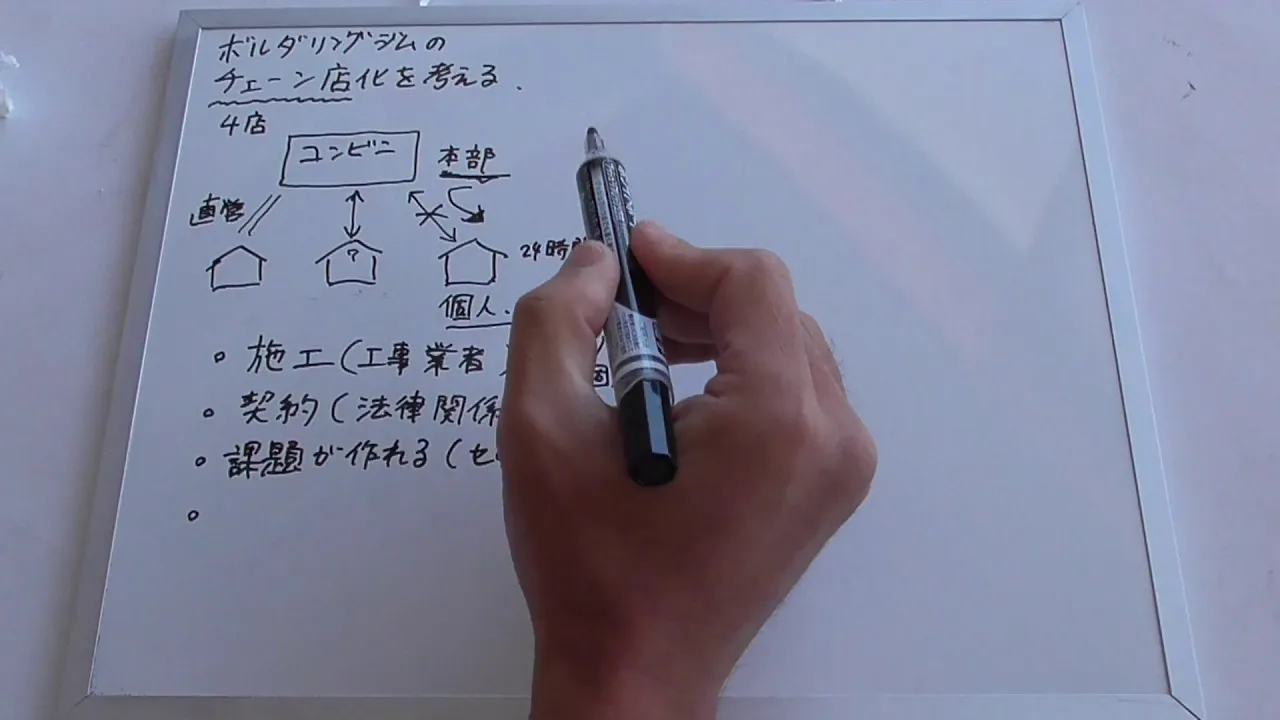 ボルダリングジムの
チェーン店化を考える.
4店
コンビニ
本部
直営
?
24時
個人.
。施工(工事業者)
。契約(法律関係
。課題が作れる(セ
。